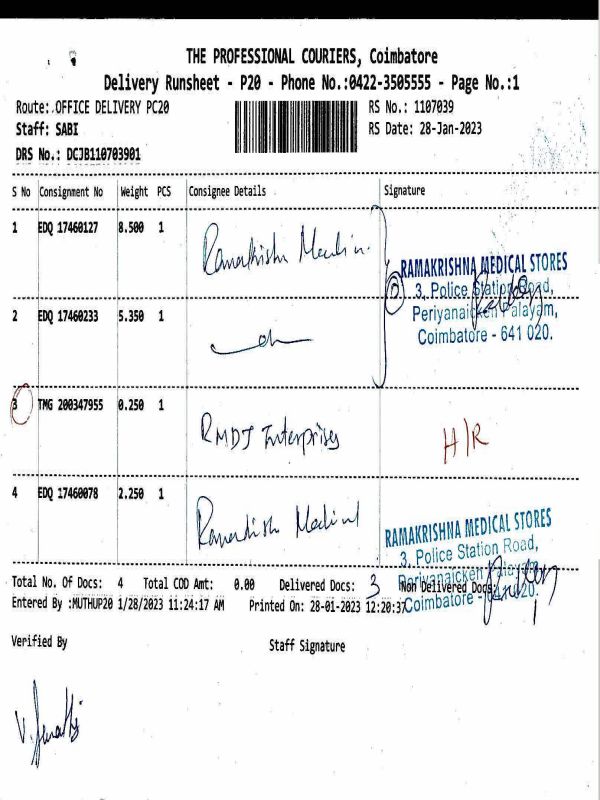 THE PROFESSIONAL COURIERS, Coimbatore
Delivery Runsheet - P20 - Phone No.:0422-3505555 - Page No.:1
Route: OFFICE DELIVERY PC20 RS No.: 1107039
Staff: SABI RS Date: 28-Jan-2023
DRS No.: DCJB110703901
S No Consignment No Weight PCS Consignee Details Signature
1 EDQ 17460127 8.500 1 Ramakrishna
RAMAKRISHNA MEDICAL STORES
3, Police Station Road,
Periyanaicken Palayam,
Coimbatore - 641 020.
2 EDQ 17460233 5.350 1
3 TMG 200347955 0.250 1 RMDJ Enterprises H/R
4 EDQ 17460078 2.250 1 Medical
RAMAKRISHNA MEDICAL STORES
3, Police Station Road,
Periyanaicken Palayam,
Coimbatore - 641 020.
Total No. Of Docs: 4 Total COD Amt: 0.00 Delivered Docs: 3 Non Delivered Docs:
Entered By :MUTHUP20 1/28/2023 11:24:17 AM Printed On: 28-01-2023 12:20:37
Verified By Staff Signature